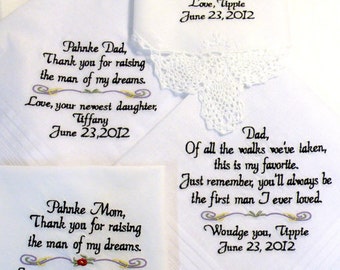 Love, Tippie
June 23, 2012
Pahnke Dad,
Thank you for raising
the man of my dreams.
Love, your newest daughter,
Tiffany
June 23,2012
Dad,
Of all the walks we've taken,
this is my favorite.
Just remember, you'll always be
the first man I ever loved.
Woudge you, Tippie
June 23, 2012
Pahnke Mom,
Thank you for raising
the man of my dreams.